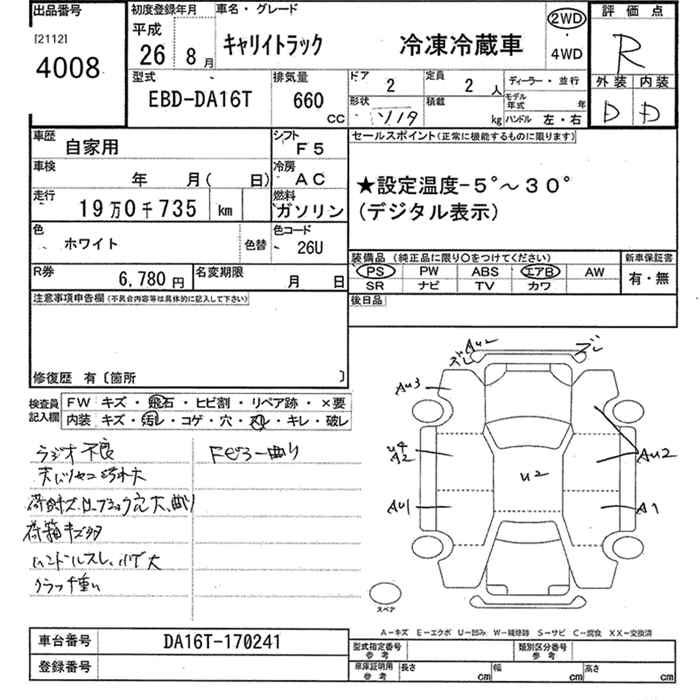 出品番号
[2112]
4008
初度登録年月
平成
26年 8月
車名・グレード
キャリイトラック 冷凍冷蔵車
2WD
・
4WD
評価点
R
外装 内装
D D
型式
EBD-DA16T
排気量
660
CC
ドア
2
定員
2人
ディーラー・並行
形状
積載
kg
モデル年式 年
ハンドル 左・右
車歴
自家用
シフト
F5
車検
年 月( 日)
冷房
AC
走行
19万0千735 km
燃料
ガソリン
色
ホワイト
色替
色コード
26U
R券
6,780円
名変期限
月 日
セールスポイント(正常に機能するものに限ります)
★設定温度-5°～30°
(デジタル表示)
装備品 (純正品に限り○をつけてください)
新車保証書
PS PW ABS エアB AW
SR ナビ TV カワ
有・無
後日品
注意事項申告欄(不具合内容等は具体的に記入して下さい)
修復歴 有〔箇所 〕
検査員
記入欄
FW キズ・飛石・ヒビ割・リペア跡・×要
内装 キズ・汚レ・コゲ・穴・スレ・キレ・破レ
ラジオ不良
Fピラー曲り
荷箱キズ多
ハンドルスレ
クラッチ重い
AU2
AU3
U4
A2
AU1
U2
AU2
A1
スペア
A－キズ E－エクボ U－凹み W－補修跡 S－サビ C－腐食 XX－交換済
車台番号
DA16T-170241
登録番号
型式指定番号
参考
類別区分番号
参考
車庫証明用
参考
長さ cm
幅 cm
高さ cm